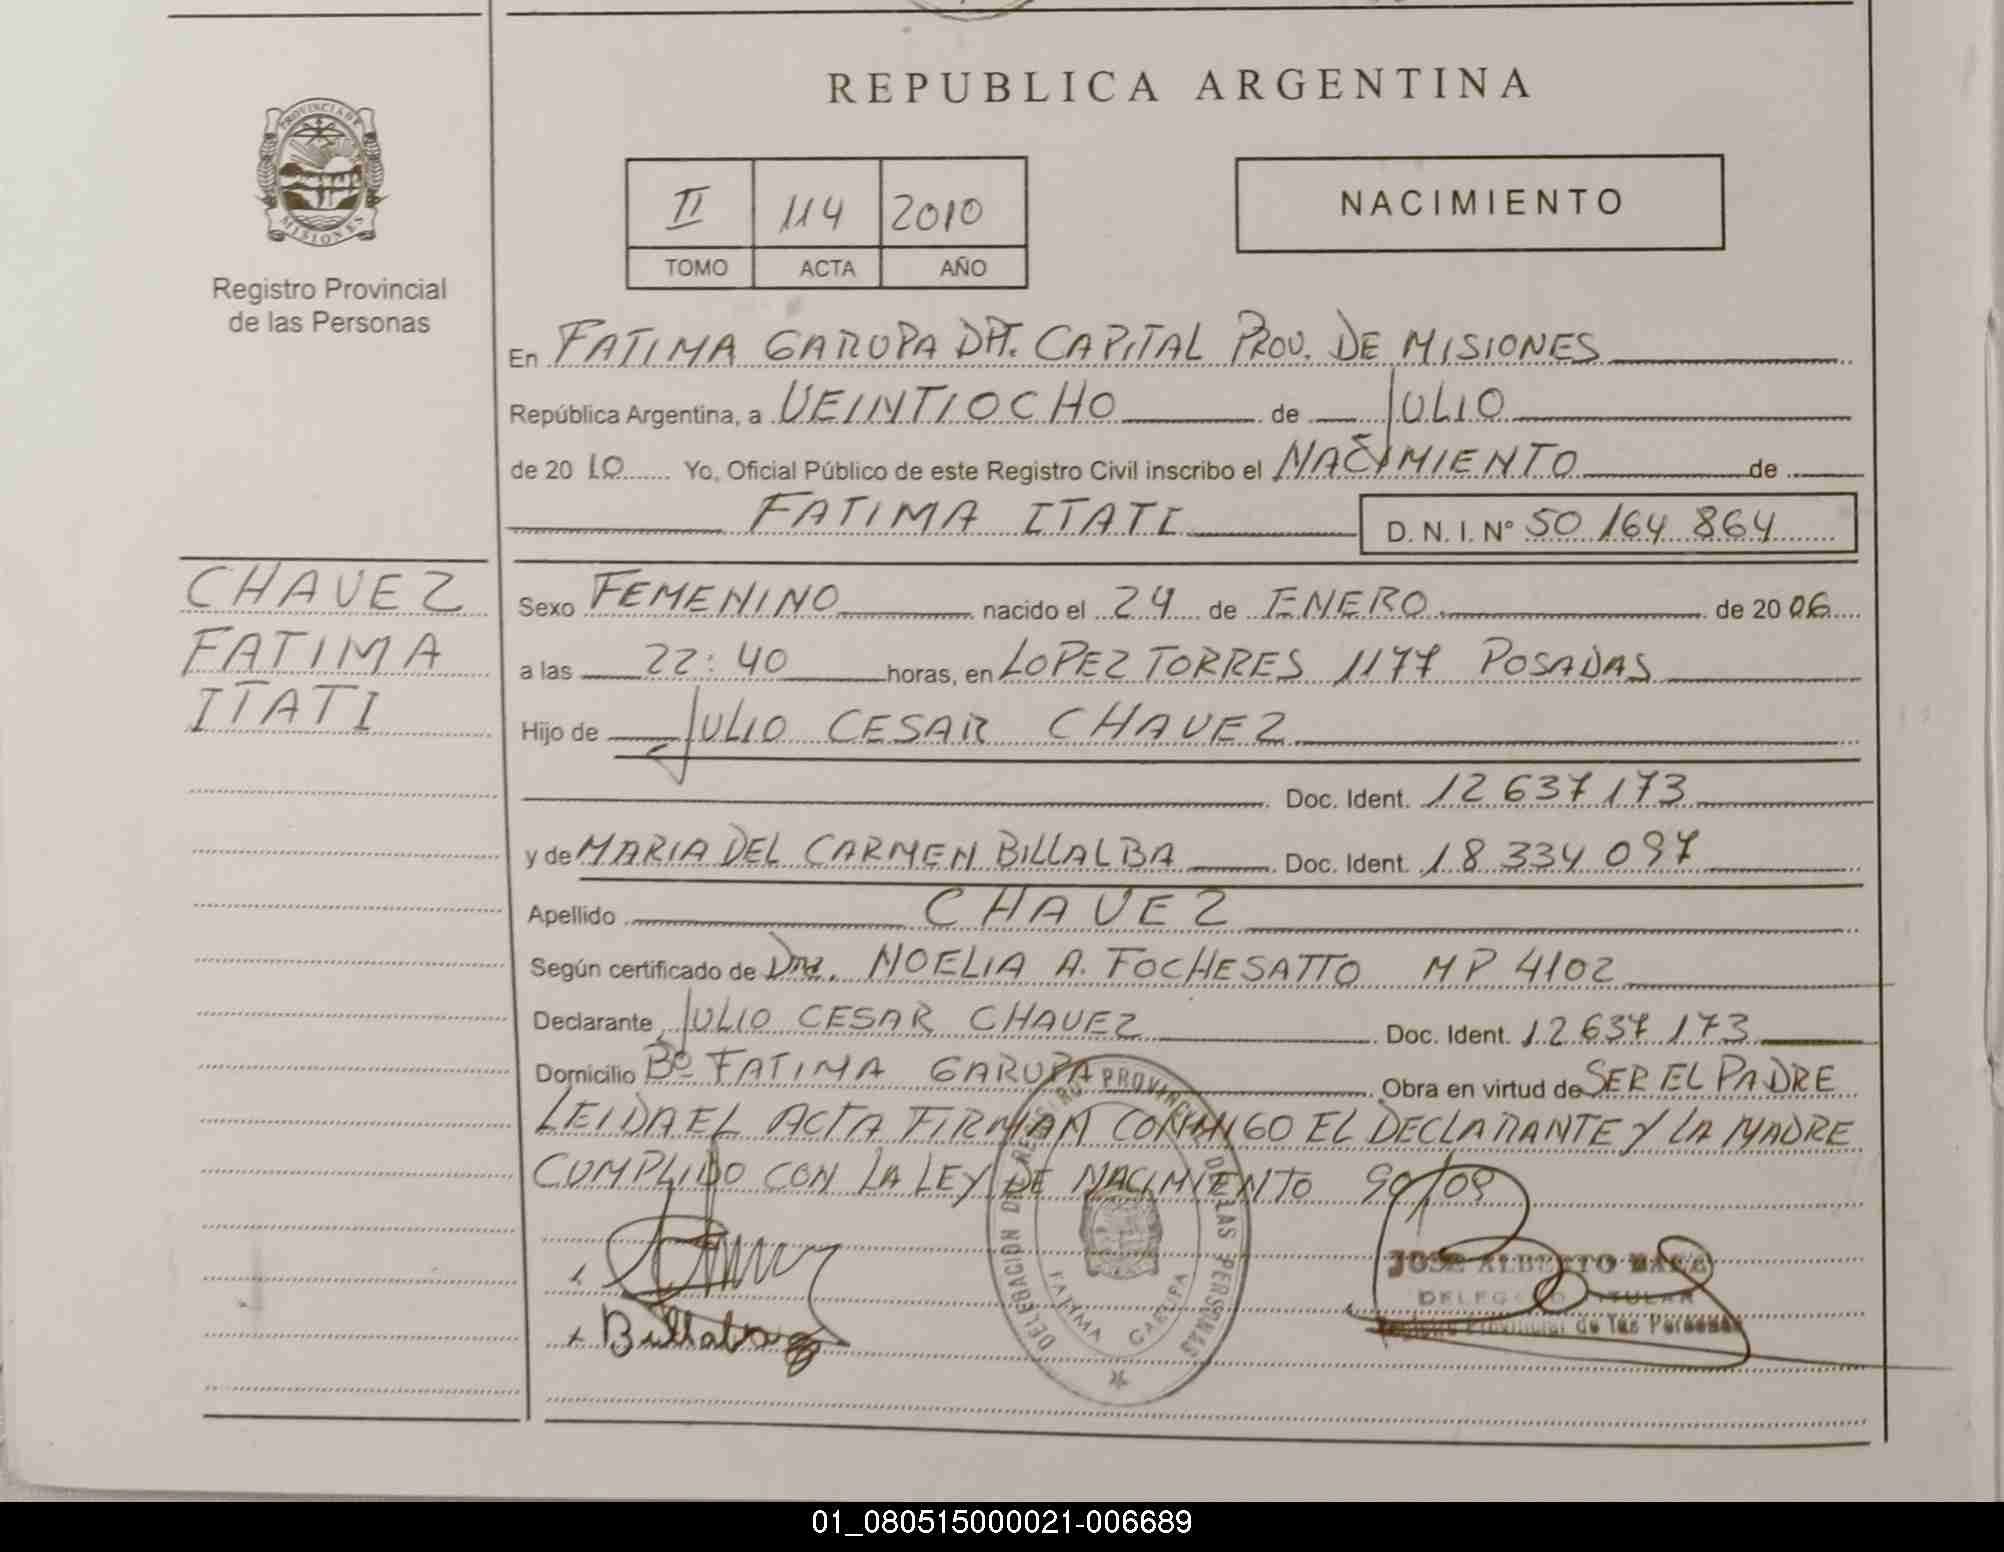 REPUBLICA ARGENTINA
PROVINCIA DE MISIONES
Registro Provincial
de las Personas
II 114 2010
TOMO ACTA AÑO
NACIMIENTO
En FATIMA GARUPA DPT. CAPITAL PROV. DE MISIONES
República Argentina, a VEINTIOCHO de JULIO
de 2010 Yo, Oficial Público de este Registro Civil inscribo el NACIMIENTO de
FATIMA ITATI D. N. I. Nº 50 164 864
CHAVEZ
FATIMA
ITATI
Sexo FEMENINO nacido el 24 de ENERO de 2006
a las 22:40 horas, en LOPEZ TORRES 1177 POSADAS
Hijo de JULIO CESAR CHAVEZ
Doc. Ident. 12 637 173
y de MARIA DEL CARMEN BILLALBA Doc. Ident. 18 334 097
Apellido CHAVEZ
Según certificado de Dra. NOELIA A. FOCHESATTO MP 4102
Declarante JULIO CESAR CHAVEZ Doc. Ident. 12 637 173
Domicilio Bº FATIMA GARUPA Obra en virtud de SER EL PADRE
LEIDA EL ACTA FIRMAN CONMIGO EL DECLARANTE Y LA MADRE
CUMPLIDO CON LA LEY DE NACIMIENTO 90/09
DELEGACION DEL REGISTRO PROVINCIAL DE LAS PERSONAS
FATIMA GARUPA
JOSE ALBERTO
DELEGADO TITULAR
Provincial de las Personas
Billalba
01_080515000021-006689